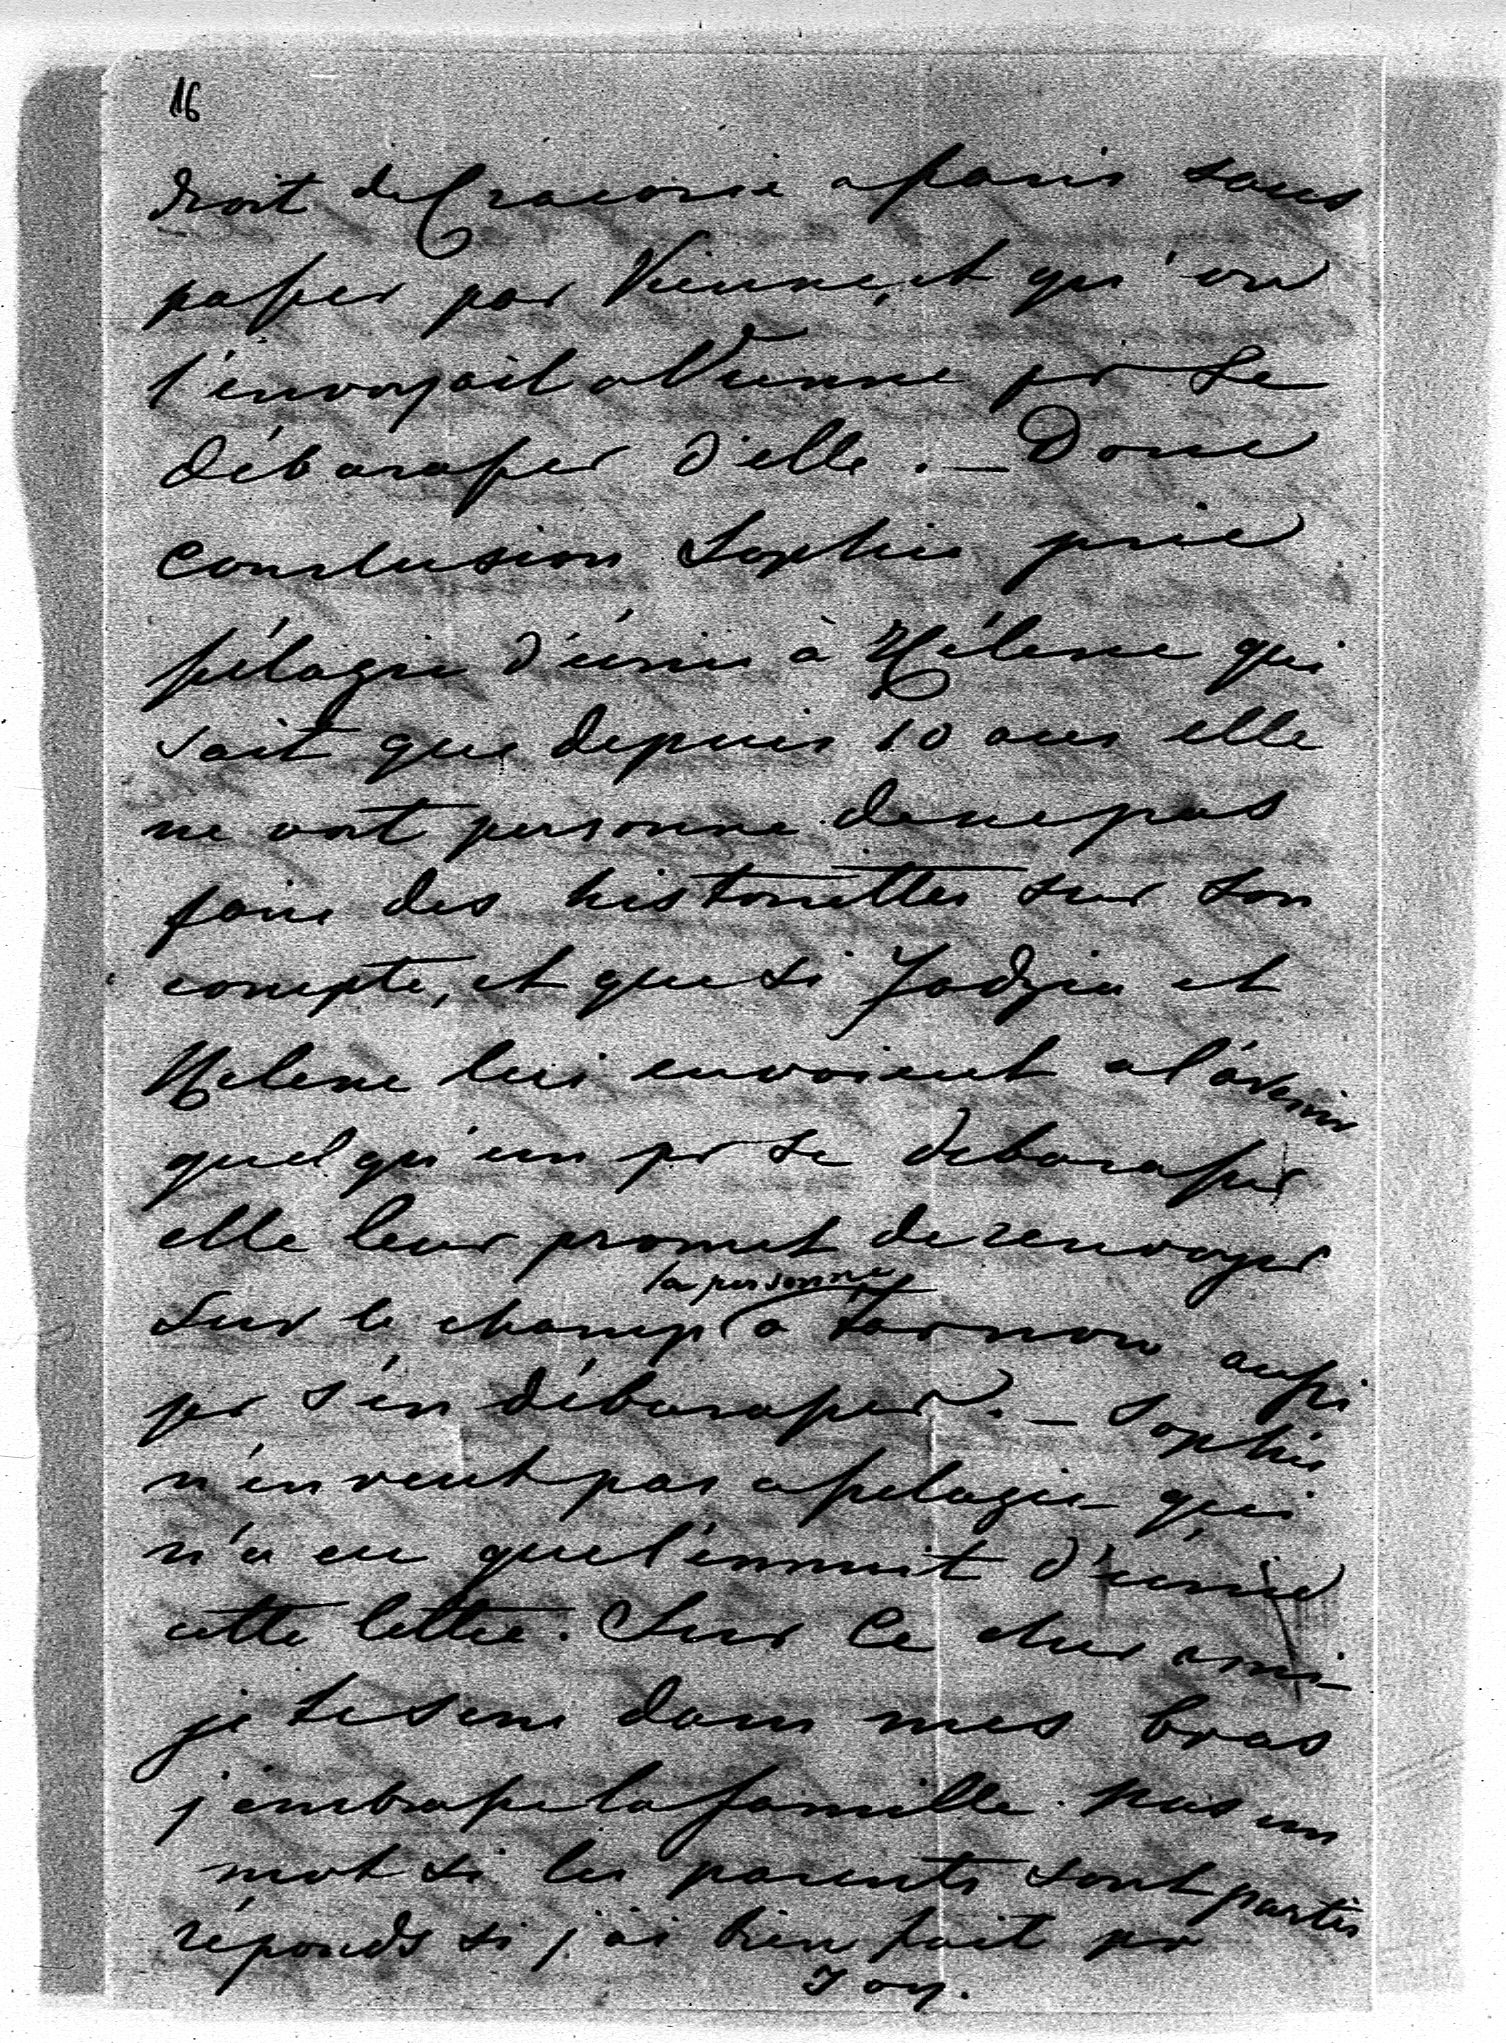 16
droit de Cracovie a paris sans
passer par Vienne, et qu'on
l'envoyait a Vienne pr se
débarasser d'elle. — Donc
conclusion Sophie prie
pélagie d'écrire à Hélene qui
sait que depuis 10 ans elle
ne voit personne de ne pas
faire des historiettes sur son
compte, et que si Jadzia et
Helene lui envoient a l'avenir
quelqu'un pr se debarasser
elle leur promet de renvoyer
la personne
sur le champ a Tarnow aussi
pr s'en débarasser. — Sophie
n'en veut pas a pelagie qui
n'a eu que l'ennuit d'écrire
cette lettre. Sur ce cher ami —
je te serre dans mes bras
j'embrasse la famille. pas un
mot si les parents sont partis
réponds si j'ai bien fait pr